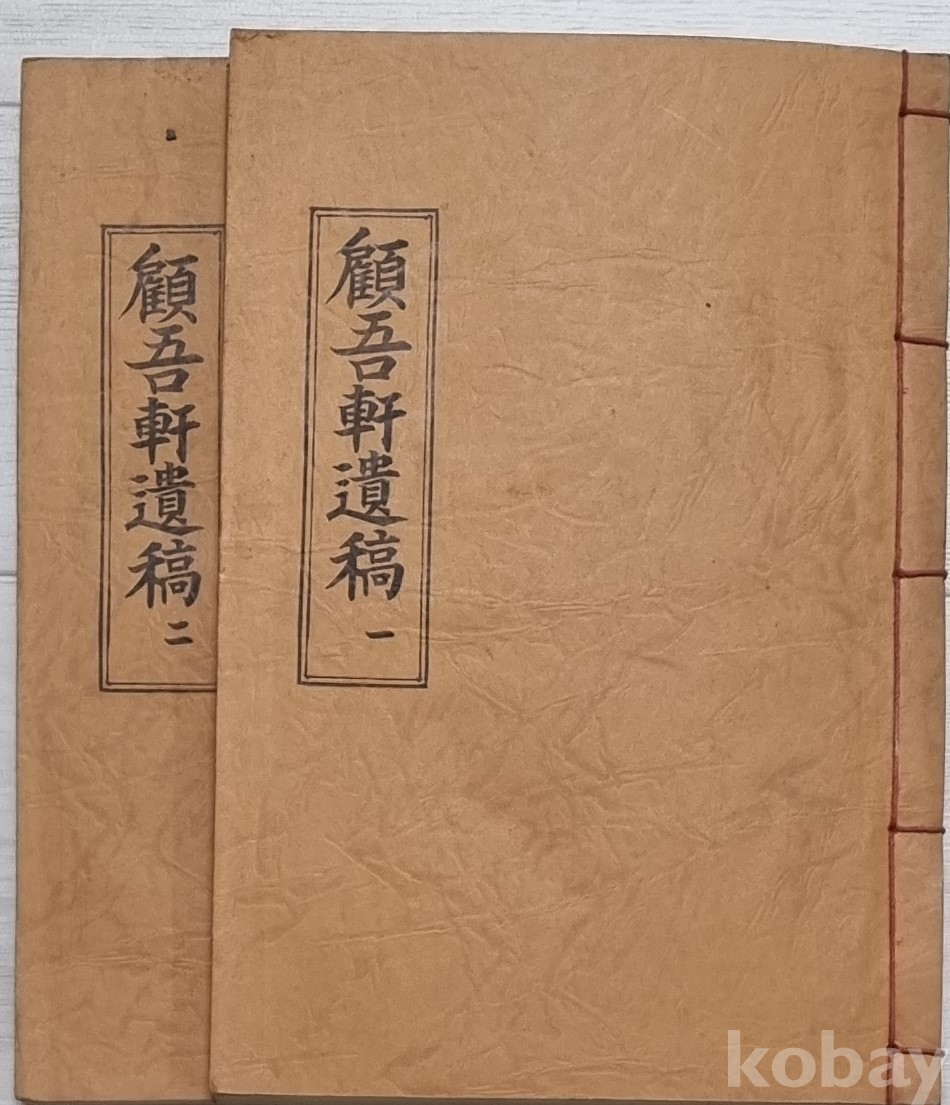 顧吾軒遺稿 一
顧吾軒遺稿 二
kobay